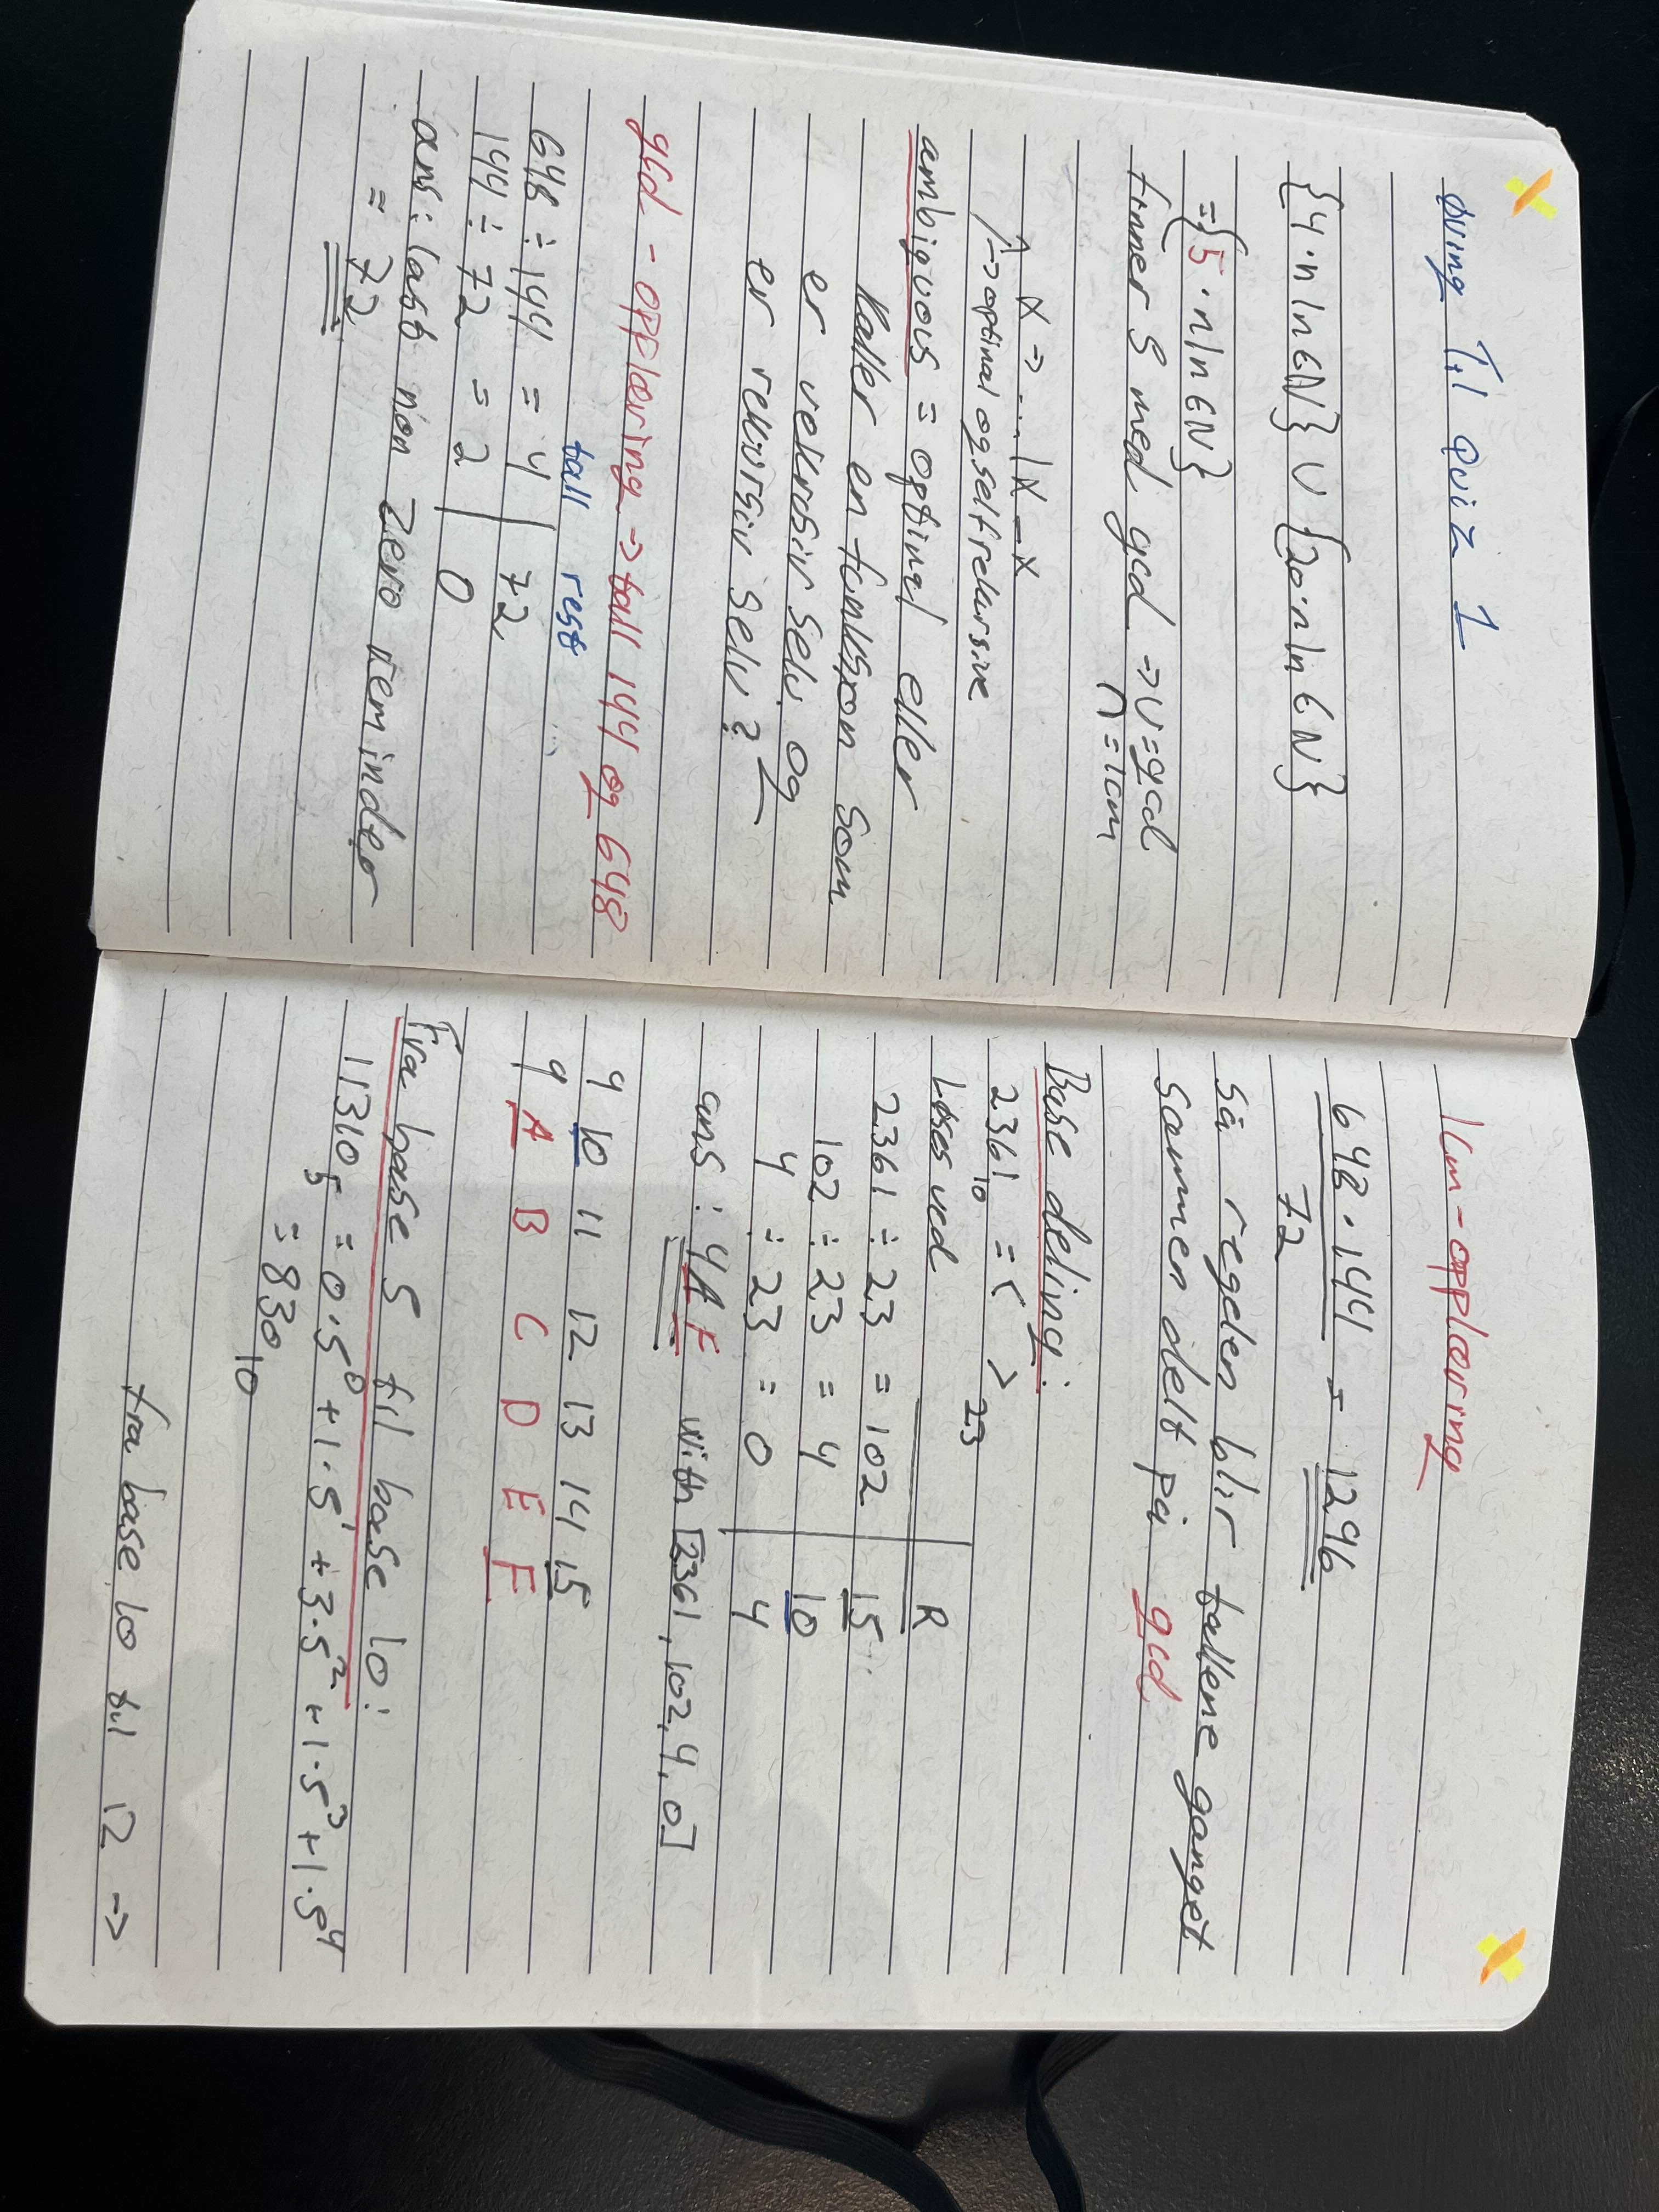 øving til quiz 1
{4·n|n∈N} ∪ {20·n|n∈N}
={5·n|n∈N}
finner 5 med gcd => ∪=gcd
∩=lcm
X => ... | X - X
↑->optinal og self rekursive
ambiguous = optinal eller
kaller en funksjon som
er vekrosiv selv og
er rekursiv selv?
gcd - opplæring -> tall 144 og 648
tall rest
648 ÷ 144 = 4 | 72
144 ÷ 72 = 2 | 0
ans: last non zero reminder
= 72
lcm-opplæring
648·144 = 1296
72
så regelen blir tallene ganget
sammen delt på gcd
Base deling:
2361₁₀ = < >₂₃
Løses ved
R
2361 ÷ 23 = 102 | 15
102 ÷ 23 = 4 | 10
4 ÷ 23 = 0 | 4
ans: 4AF with [2361, 102, 4, 0]
9 10 11 12 13 14 15
9 A B C D E F
Fra base 5 til base 10:
11310₅ = 0·5⁰ + 1·5¹ + 3·5² + 1·5³ + 1·5⁴
= 830₁₀
fra base 10 til 12 ->